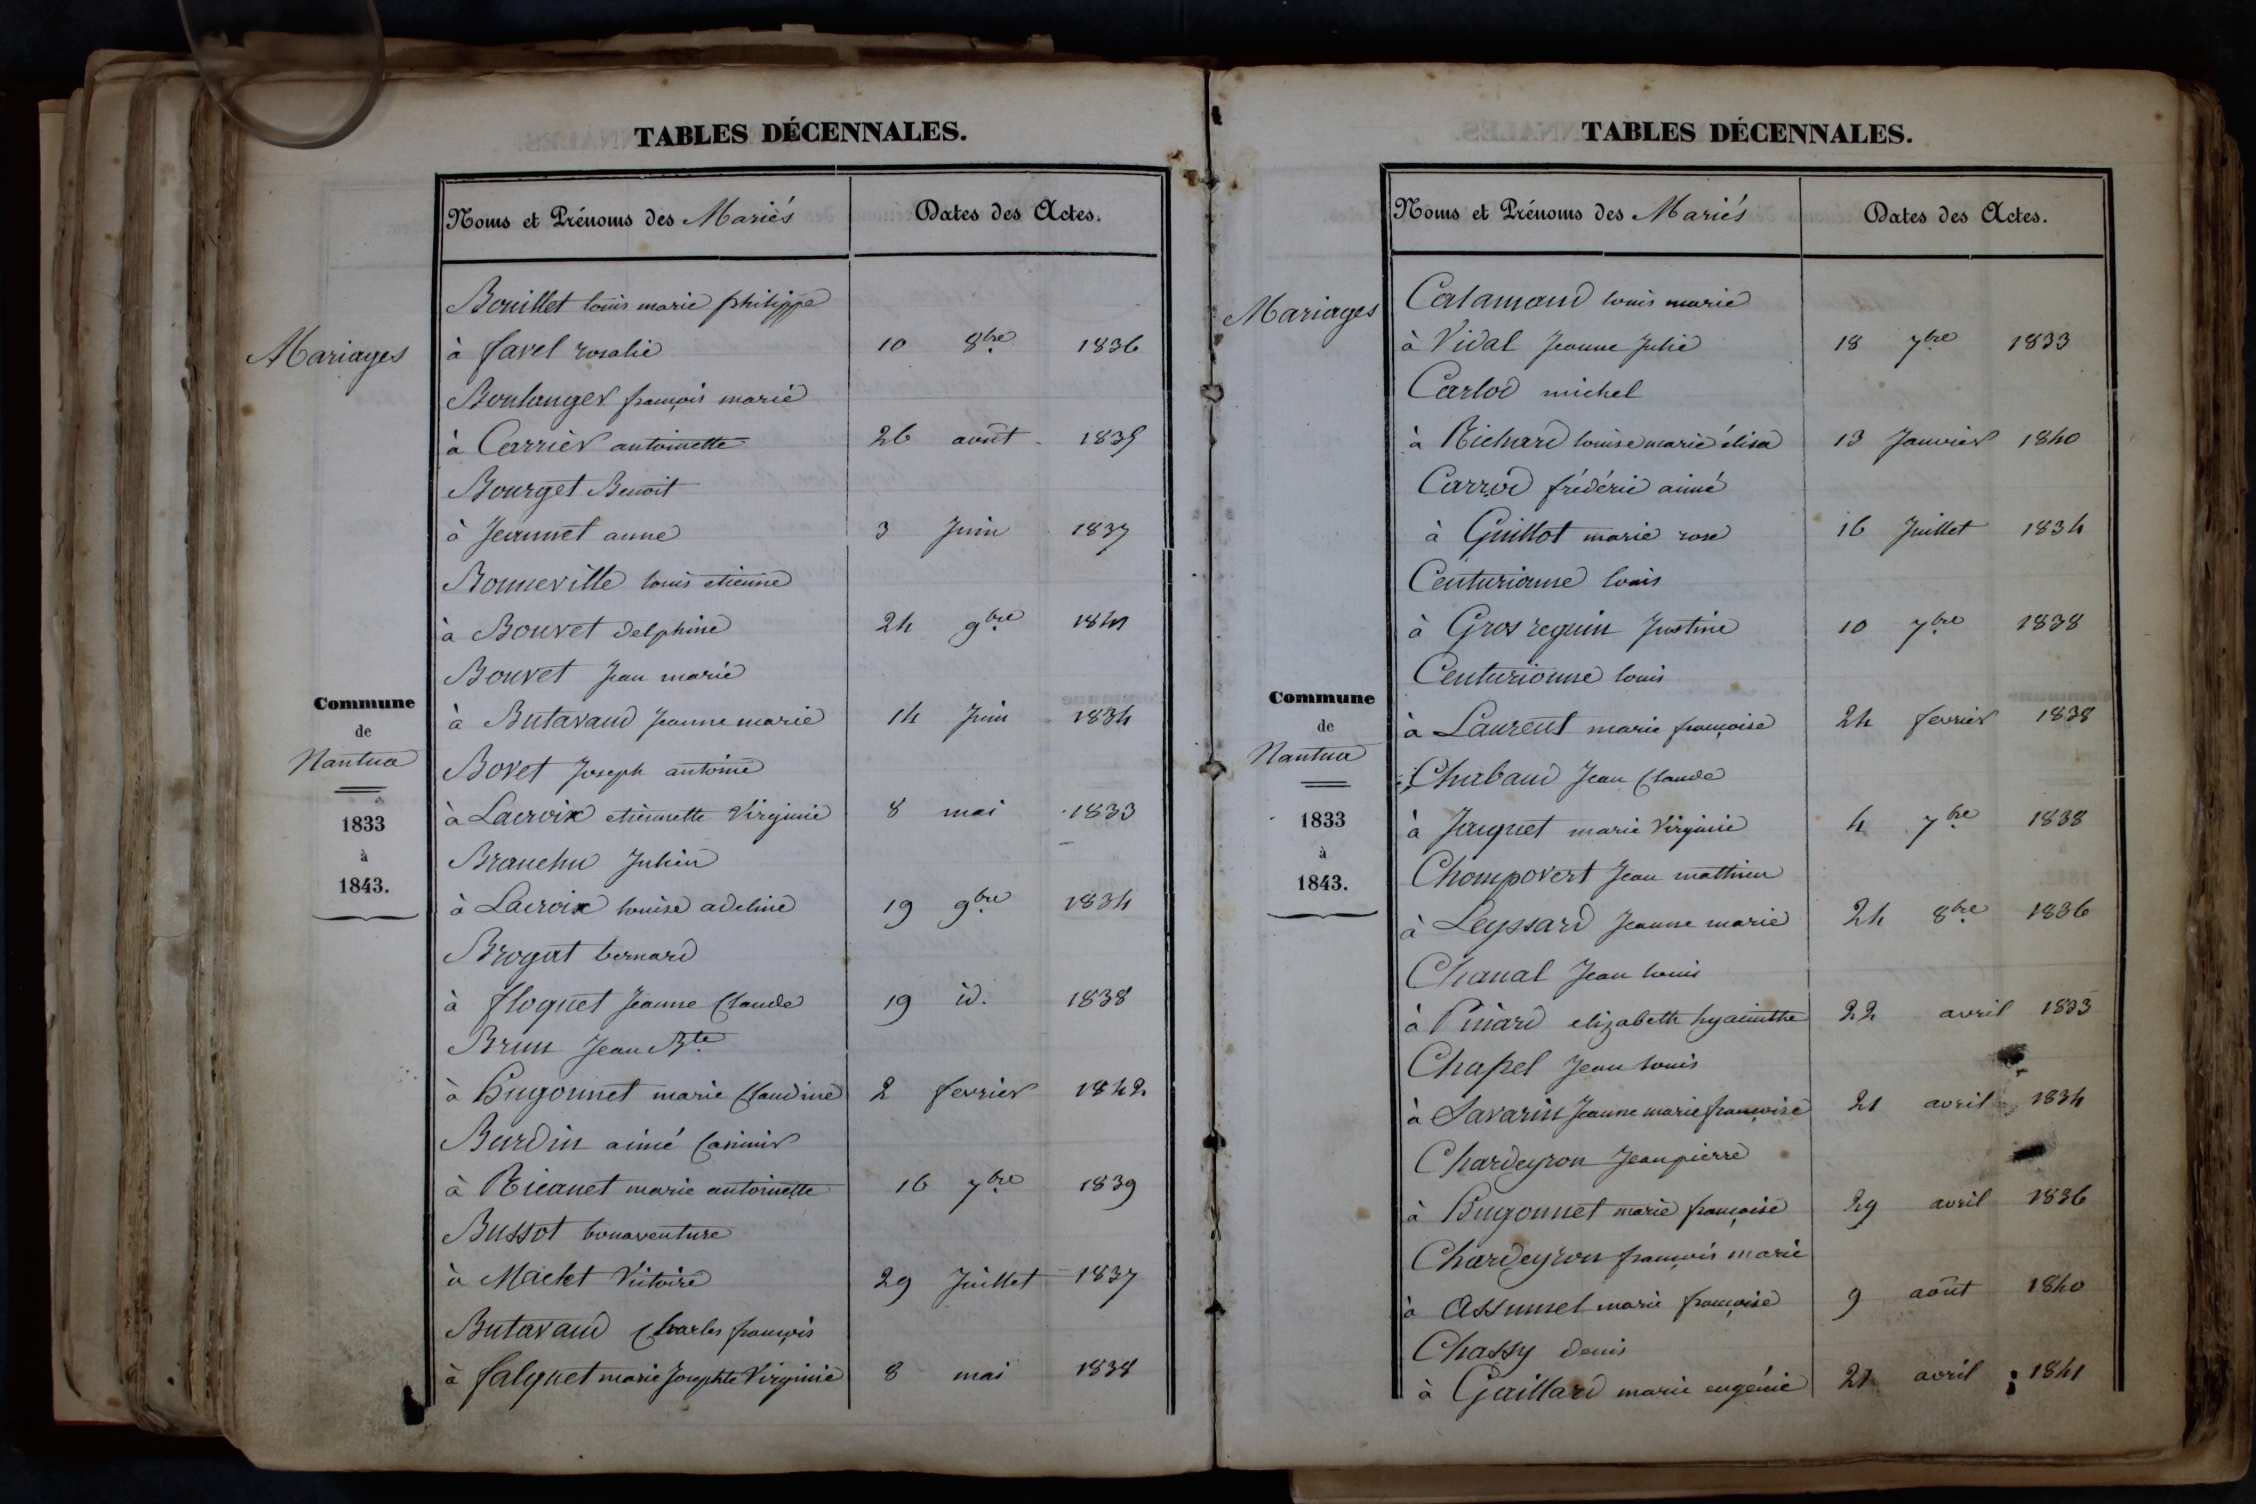 TABLES DÉCENNALES.
Noms et Prénoms des Mariés Dates des Actes.
Mariages
Commune
de
Nantua
1833
à
1843.
Bouillet louis marie philippe
à favel rosalie 10 8bre 1836
Boulanger françois marie
à Carrier antoinette 26 août 1835
Bourget Benoit
à Jeannet anne 3 Juin 1837
Bonneville louis etienne
à Bouvet delphine 24 9bre 1841
Bouvet Jean marie
à Butavaud Jeanne marie 14 Juin 1834
Bovet Joseph antoine
à Lacroix etiennette Virginie 8 mai 1833
Branchu Julien
à Lacroix louise adeline 19 9bre 1834
Brogat bernard
à floquet Jeanne Claude 19 id. 1838
Brun Jean Bte
à hugonnet marie Claudine 2 fevrier 1842
Burdin aimé Casimir
à Ricanet marie antoinette 16 7bre 1839
Bussot bonaventure
à Maclet Victoire 29 Juillet 1837
Butavaud Charles françois
à falquet marie Josephte Virginie 8 mai 1838
TABLES DÉCENNALES.
Noms et Prénoms des Mariés Dates des Actes.
Mariages
Commune
de
Nantua
1833
à
1843.
Catamand louis marie
à Vidal Jeanne Julie 18 7bre 1833
Carlod michel
à Richard louise marie élisa 13 Janvier 1840
Carrod fréderic aimé
à Guillot marie rose 16 Juillet 1834
Centurionne louis
à Gros reguin Justine 10 7bre 1838
Centurionne louis
à Laurent marie françoise 24 fevrier 1838
Chabaud Jean Claude
à Jaquet marie Virginie 4 7bre 1838
Champovert Jean mathieu
à Leyssard Jeanne marie 24 8bre 1836
Chanal Jean louis
à Pinard elizabeth hyacinthe 22 avril 1833
Chapel Jean louis
à Savarin Jeanne marie françoise 21 avril 1834
Chardeyron Jean pierre
à hugonnet marie françoise 29 avril 1836
Chardeyron françois marie
à Assumel marie françoise 9 août 1840
Chassy denis
à Gaillard marie eugénie 21 avril 1841